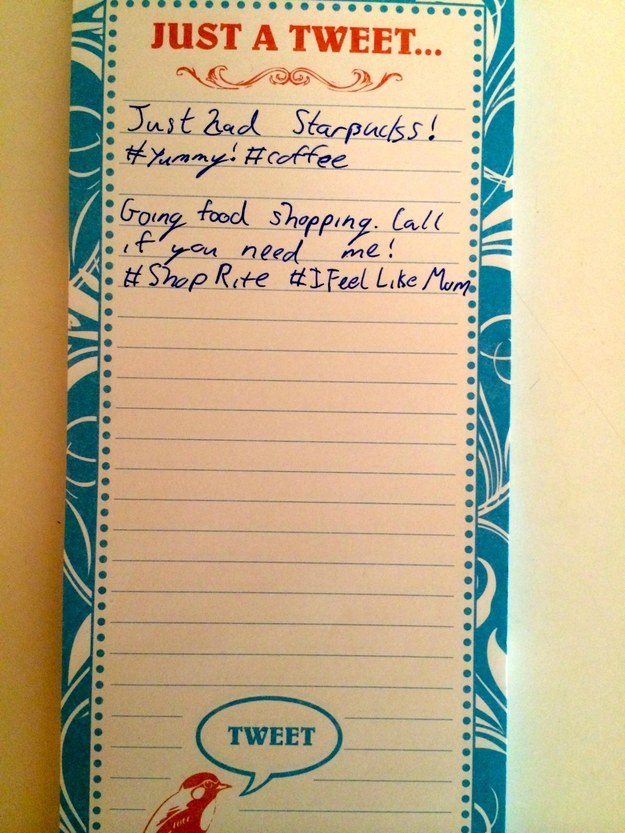 JUST A TWEET...
Just had Starpucks!
#Yummy! #coffee
Going food shopping. Call
if you need me!
#ShopRite #IFeelLikeMum
TWEET